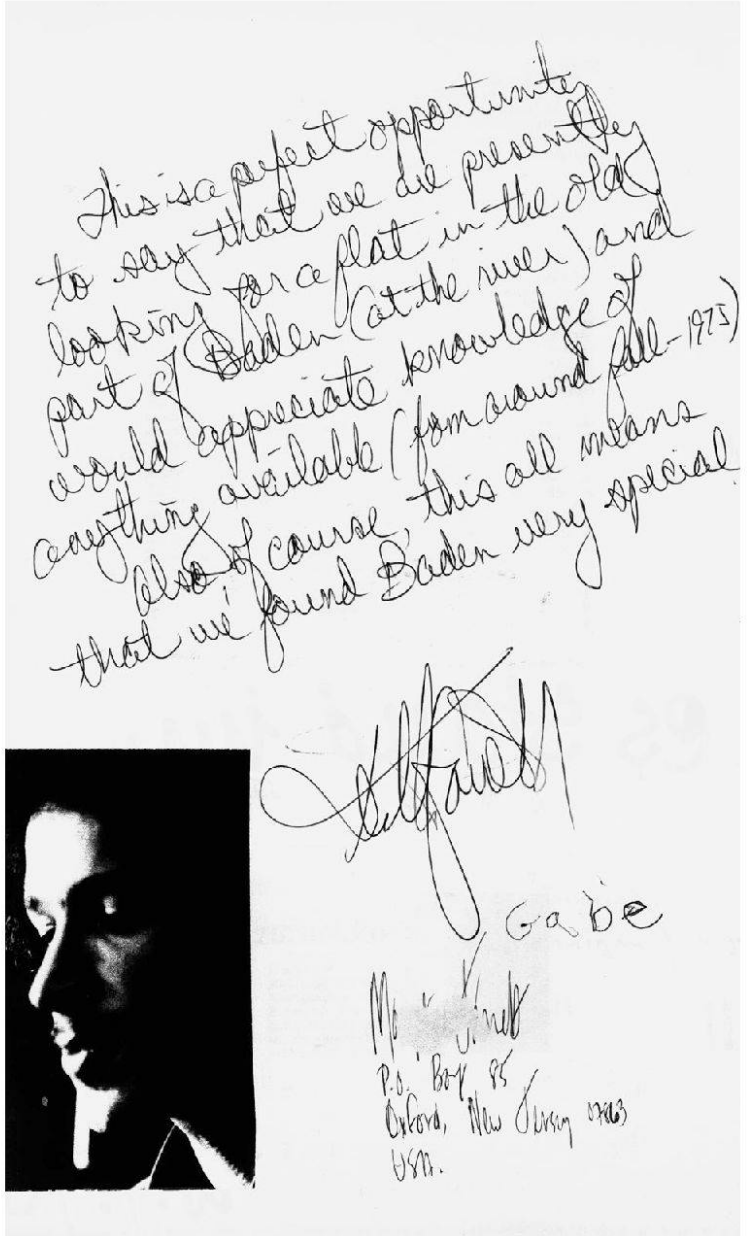 This is a perfect opportunity
to say that we are presently
looking for a flat in the old
part of Baden (at the river) and
would appreciate knowledge of
anything available (from around fall-1975)
Also, of course, this all means
that we found Baden very special
Gabe
P.O. Box 85
Oxford, New Jersey 07863
USA.